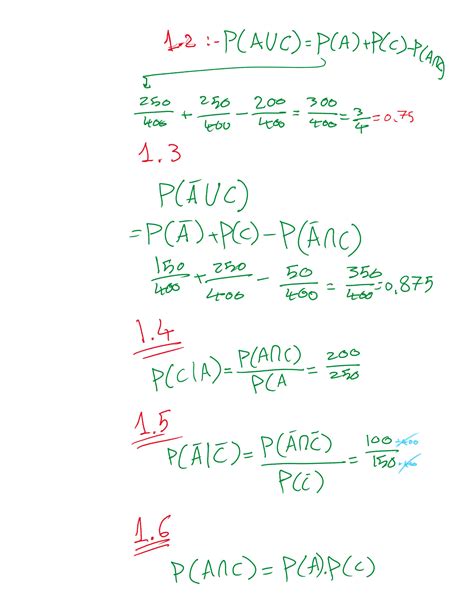 1.2 :- P(A∪C)=P(A)+P(C)-P(A∩C)
250/400 + 250/400 - 200/400 = 300/400 = 3/4 = 0.75
1.3
P(Ā∪C)
=P(Ā)+P(C)-P(Ā∩C)
150/400 + 250/400 - 50/400 = 350/400 = 0.875
1.4
P(C|A)= P(A∩C)/P(A = 200/250
1.5
P(Ā|C̄)= P(Ā∩C̄)/P(C̄) = 100/150
1.6
P(A∩C)=P(A).P(C)